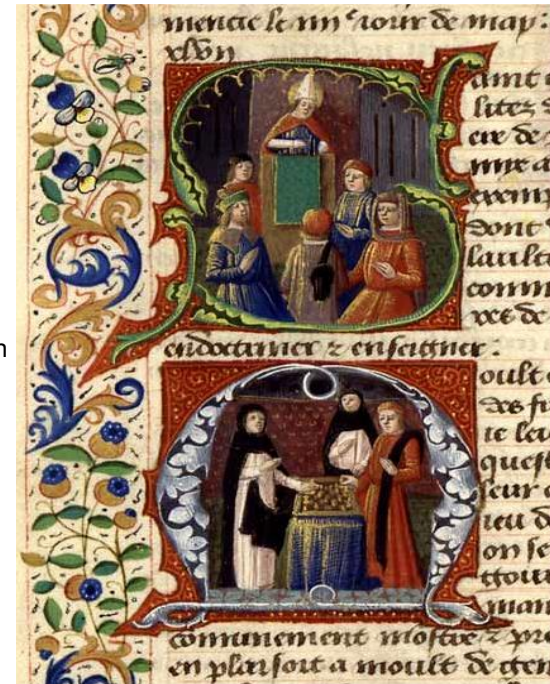 mencie le iiii iour de may :
xlvii
aint
litez
cre de
mye a
exem
Dont
laulte
comm
ces de
endoctriner z enseigner :
oult
des fr
te les
quest
seur
ieu d
on se
trou
man
comunement mostre z pre
en plaisort a moult de gen
n